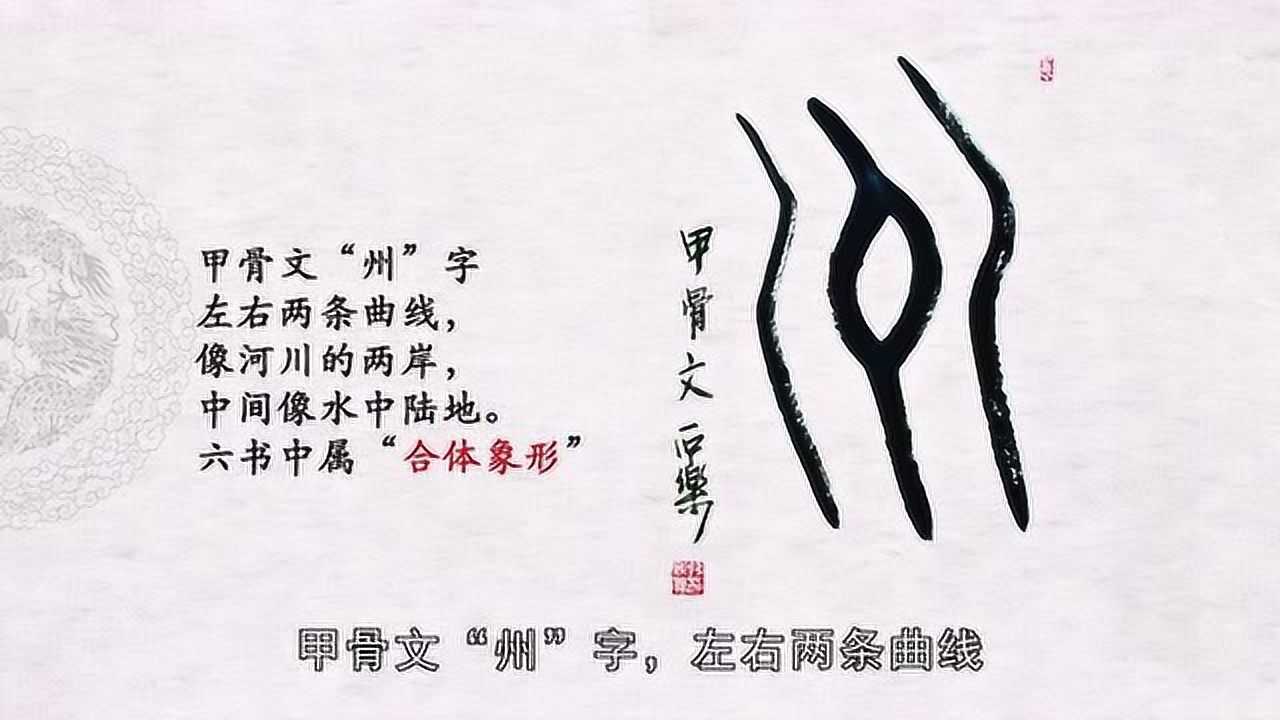 甲骨文“州”字
左右两条曲线，
像河川的两岸，
中间像水中陆地。
六书中属“合体象形”
甲骨文石樂
甲骨文“州”字，左右两条曲线